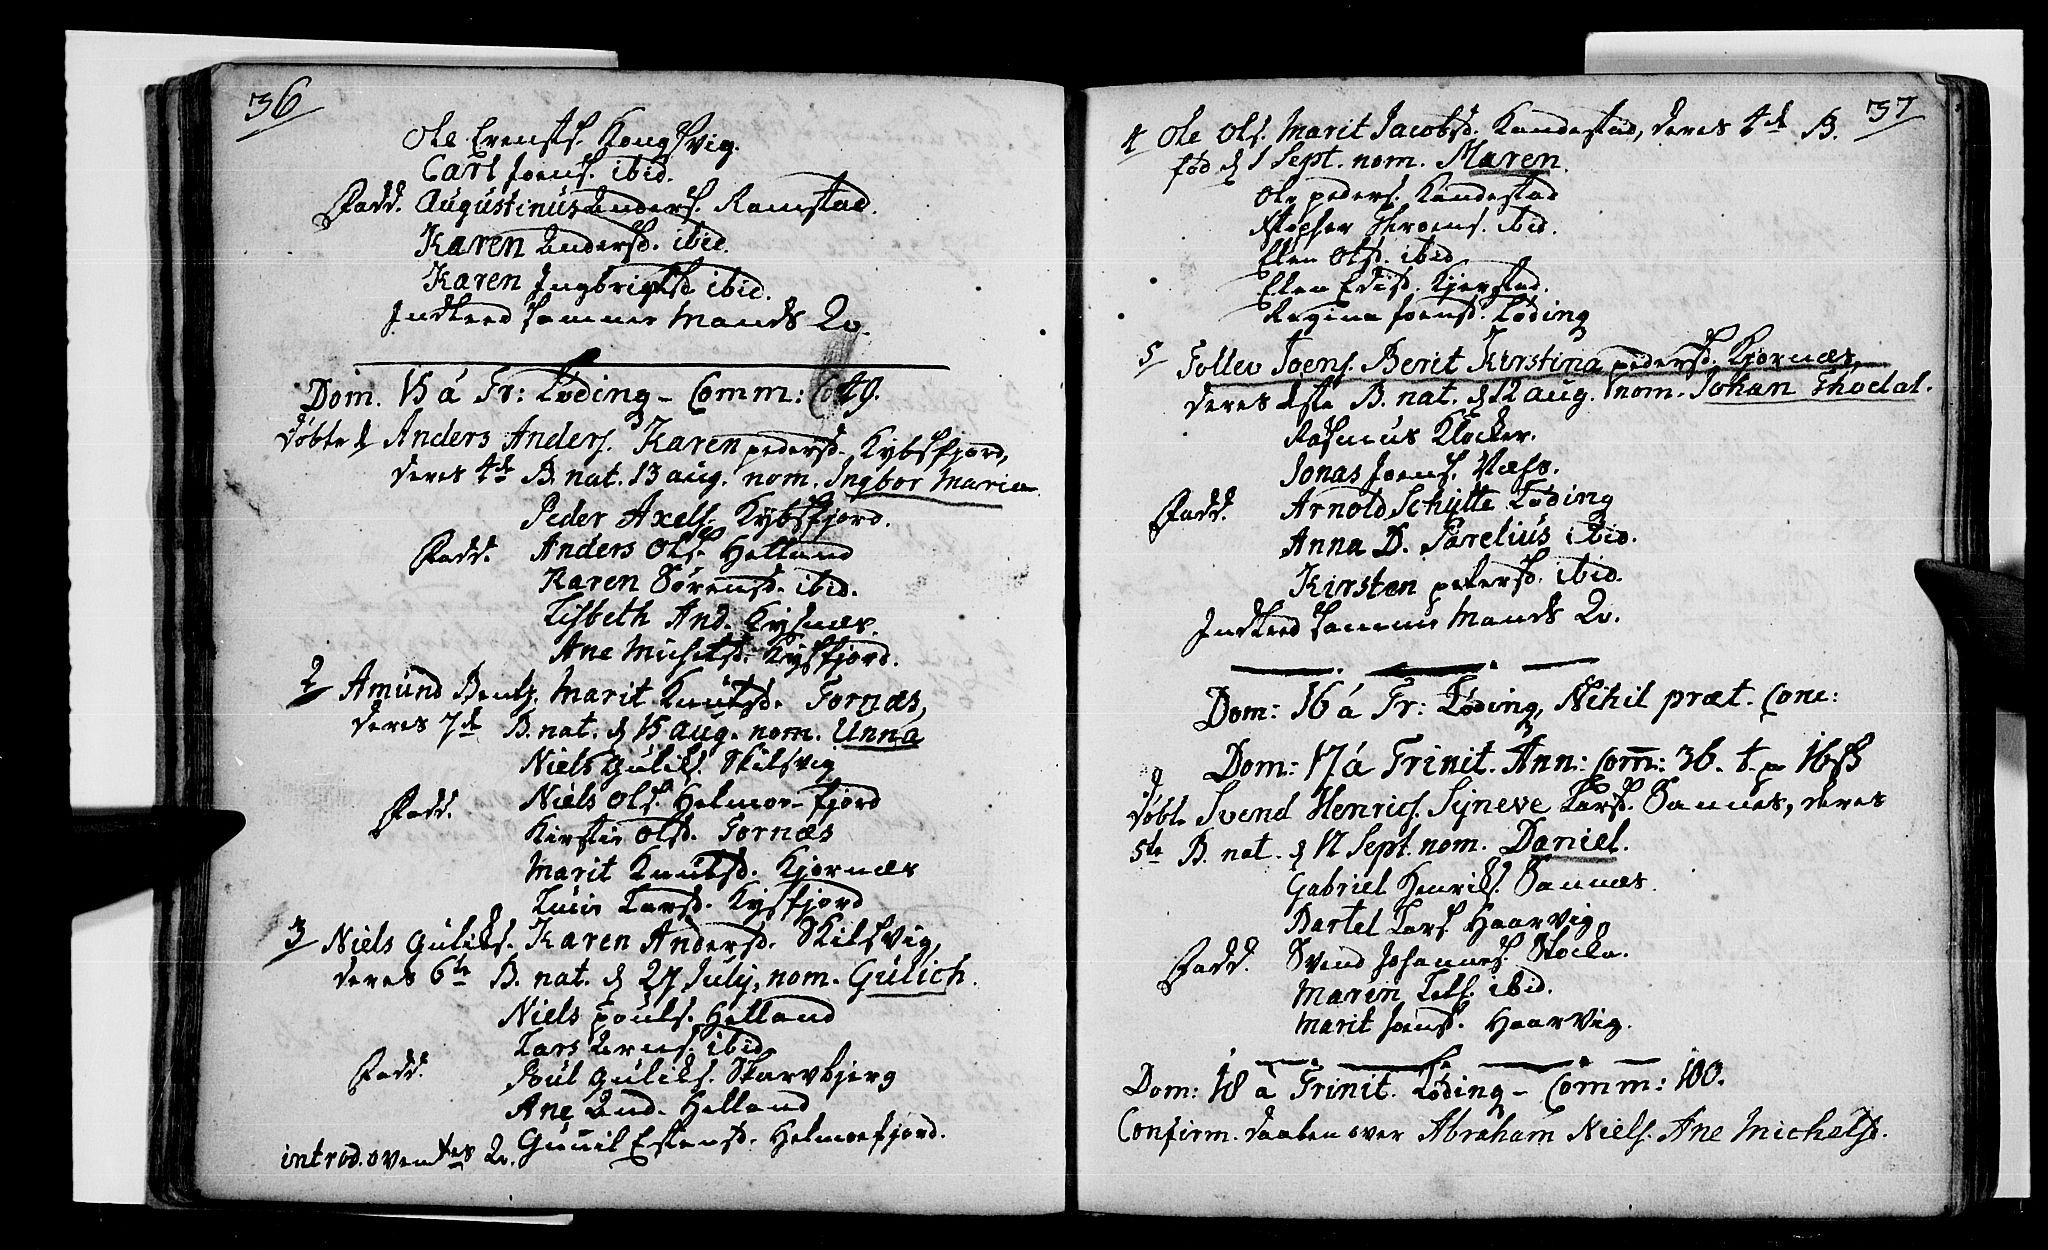 36
Ole Ernsts. Kongsvig.
Carl Joens. ibid.
Fadd. Augustinus Anders. Ramstad.
Karen Andersd. ibid.
Karen Ingbrigtsd. ibid.
Indleed samme Mands Qv.
Dom. 15 á Tr: Løding - Comm: 49.
Døbte d Anders Anders. Karen pedersd. Kybsfjord,
deres 4de B. nat. 13 aug. nom. Ingbor Maria
Peder Axels. Kybsfjord.
Fadd. Anders Ols. Helland
Karen Sørensd. ibid.
Lisbeth And. Kysnæs.
Ane Michelsd. Kysfjord.
2 Amund Bents. Marit Knutsd. Fornæs,
deres 7de B. nat. d 15 aug. nom. Unna
Niels Guliks. Skilsvig
Fadd. Niels Ols. Helmoe-fjord
Kirstie Olsd. Fornæs
Marit Knutsd. Kjornæs
Larsd. Kysfjord
3 Niels Guliks. Karen Andersd. Skilsvig,
deres 6te B. nat. d 27 July, nom. Gulich.
Niels pouls. Helland
Lars Arns. ibid.
Fadd. Poul Guliks. Skarvbjerg
Ane And. Helland
introd. oventes Qv. Gunil Estensd. Helmoefjord.
37
4 Ole Ols. Marit Jacobsd. Kandestad, deres 4de B.
fød d 1 Sept. nom. Maren.
Ole peders. Kandestad
ibid.
Elen Olsd. ibid
Elen Kjerstad.
Regina Joensd. Løding
5 Tollev Joens. Berit Kirstina pedersd. Kjornæs,
deres 1ste B. nat. d 12 aug. nom. Johan Thodal.
Rasmus Klocker.
Jonas Joens. Næss.
Fadd. Arnold Schytte Løding
Anna D. Parelius ibid.
Kirsten petersd. ibid.
Indleed samme Mands Qv.
Dom: 16 á Tr: Løding, Nihil præt. Conc:
Dom: 17 á Trinit. Ann: Com: 36.
Døbt Svend Henrics. Syneve Larsd. Sannæs, deres
5te B. nat. d 12 Sept. nom. Daniel.
Gabriel Henriks. Sannæs.
Bartel Lars Haarvig
Fadd. Svend Johannes. Stocke.
Maren ibid.
Marit Joensd. Haarvig.
Dom: 18 á Trinit. Løding - Comm: 100.
Confirm. daaben over Abraham Niels. Ane Michelsd.